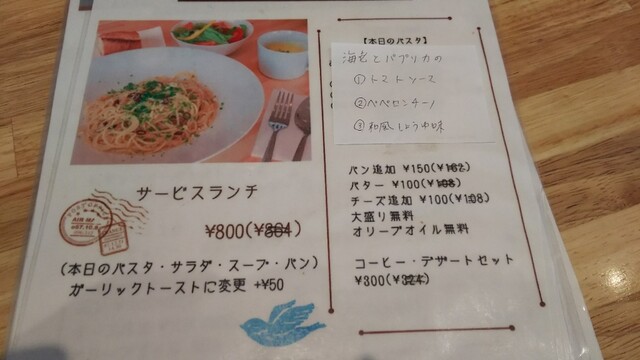 サービスランチ
¥800(¥864)
(本日のパスタ・サラダ・スープ・パン)
ガーリックトーストに変更 +¥50
【本日のパスタ】
海老とパプリカの
①トマトソース
②ペペロンチーノ
③和風しょうゆ味
パン追加 ¥150(¥162)
バター ¥100(¥108)
チーズ追加 ¥100(¥108)
大盛り無料
オリーブオイル無料
コーヒー・デザートセット
¥300(¥324)